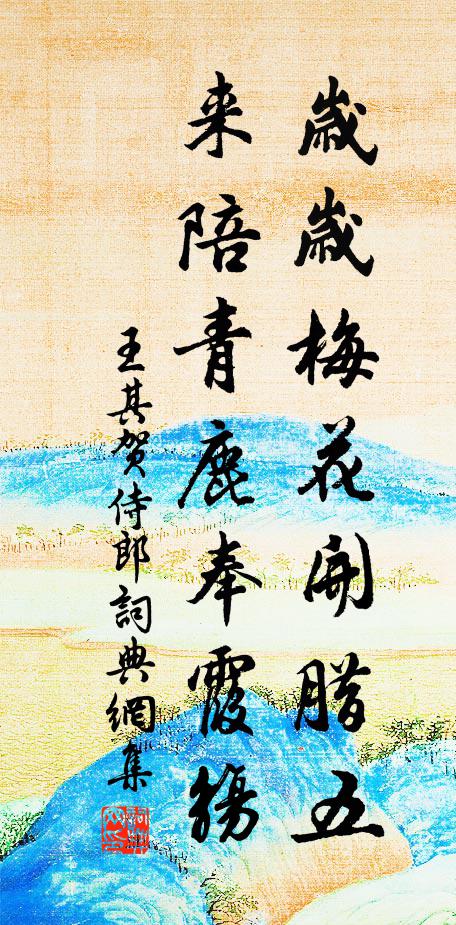 歲歲梅花開腊五
来陪青鹿奉霞觴
王其贺侍郎詞典網集